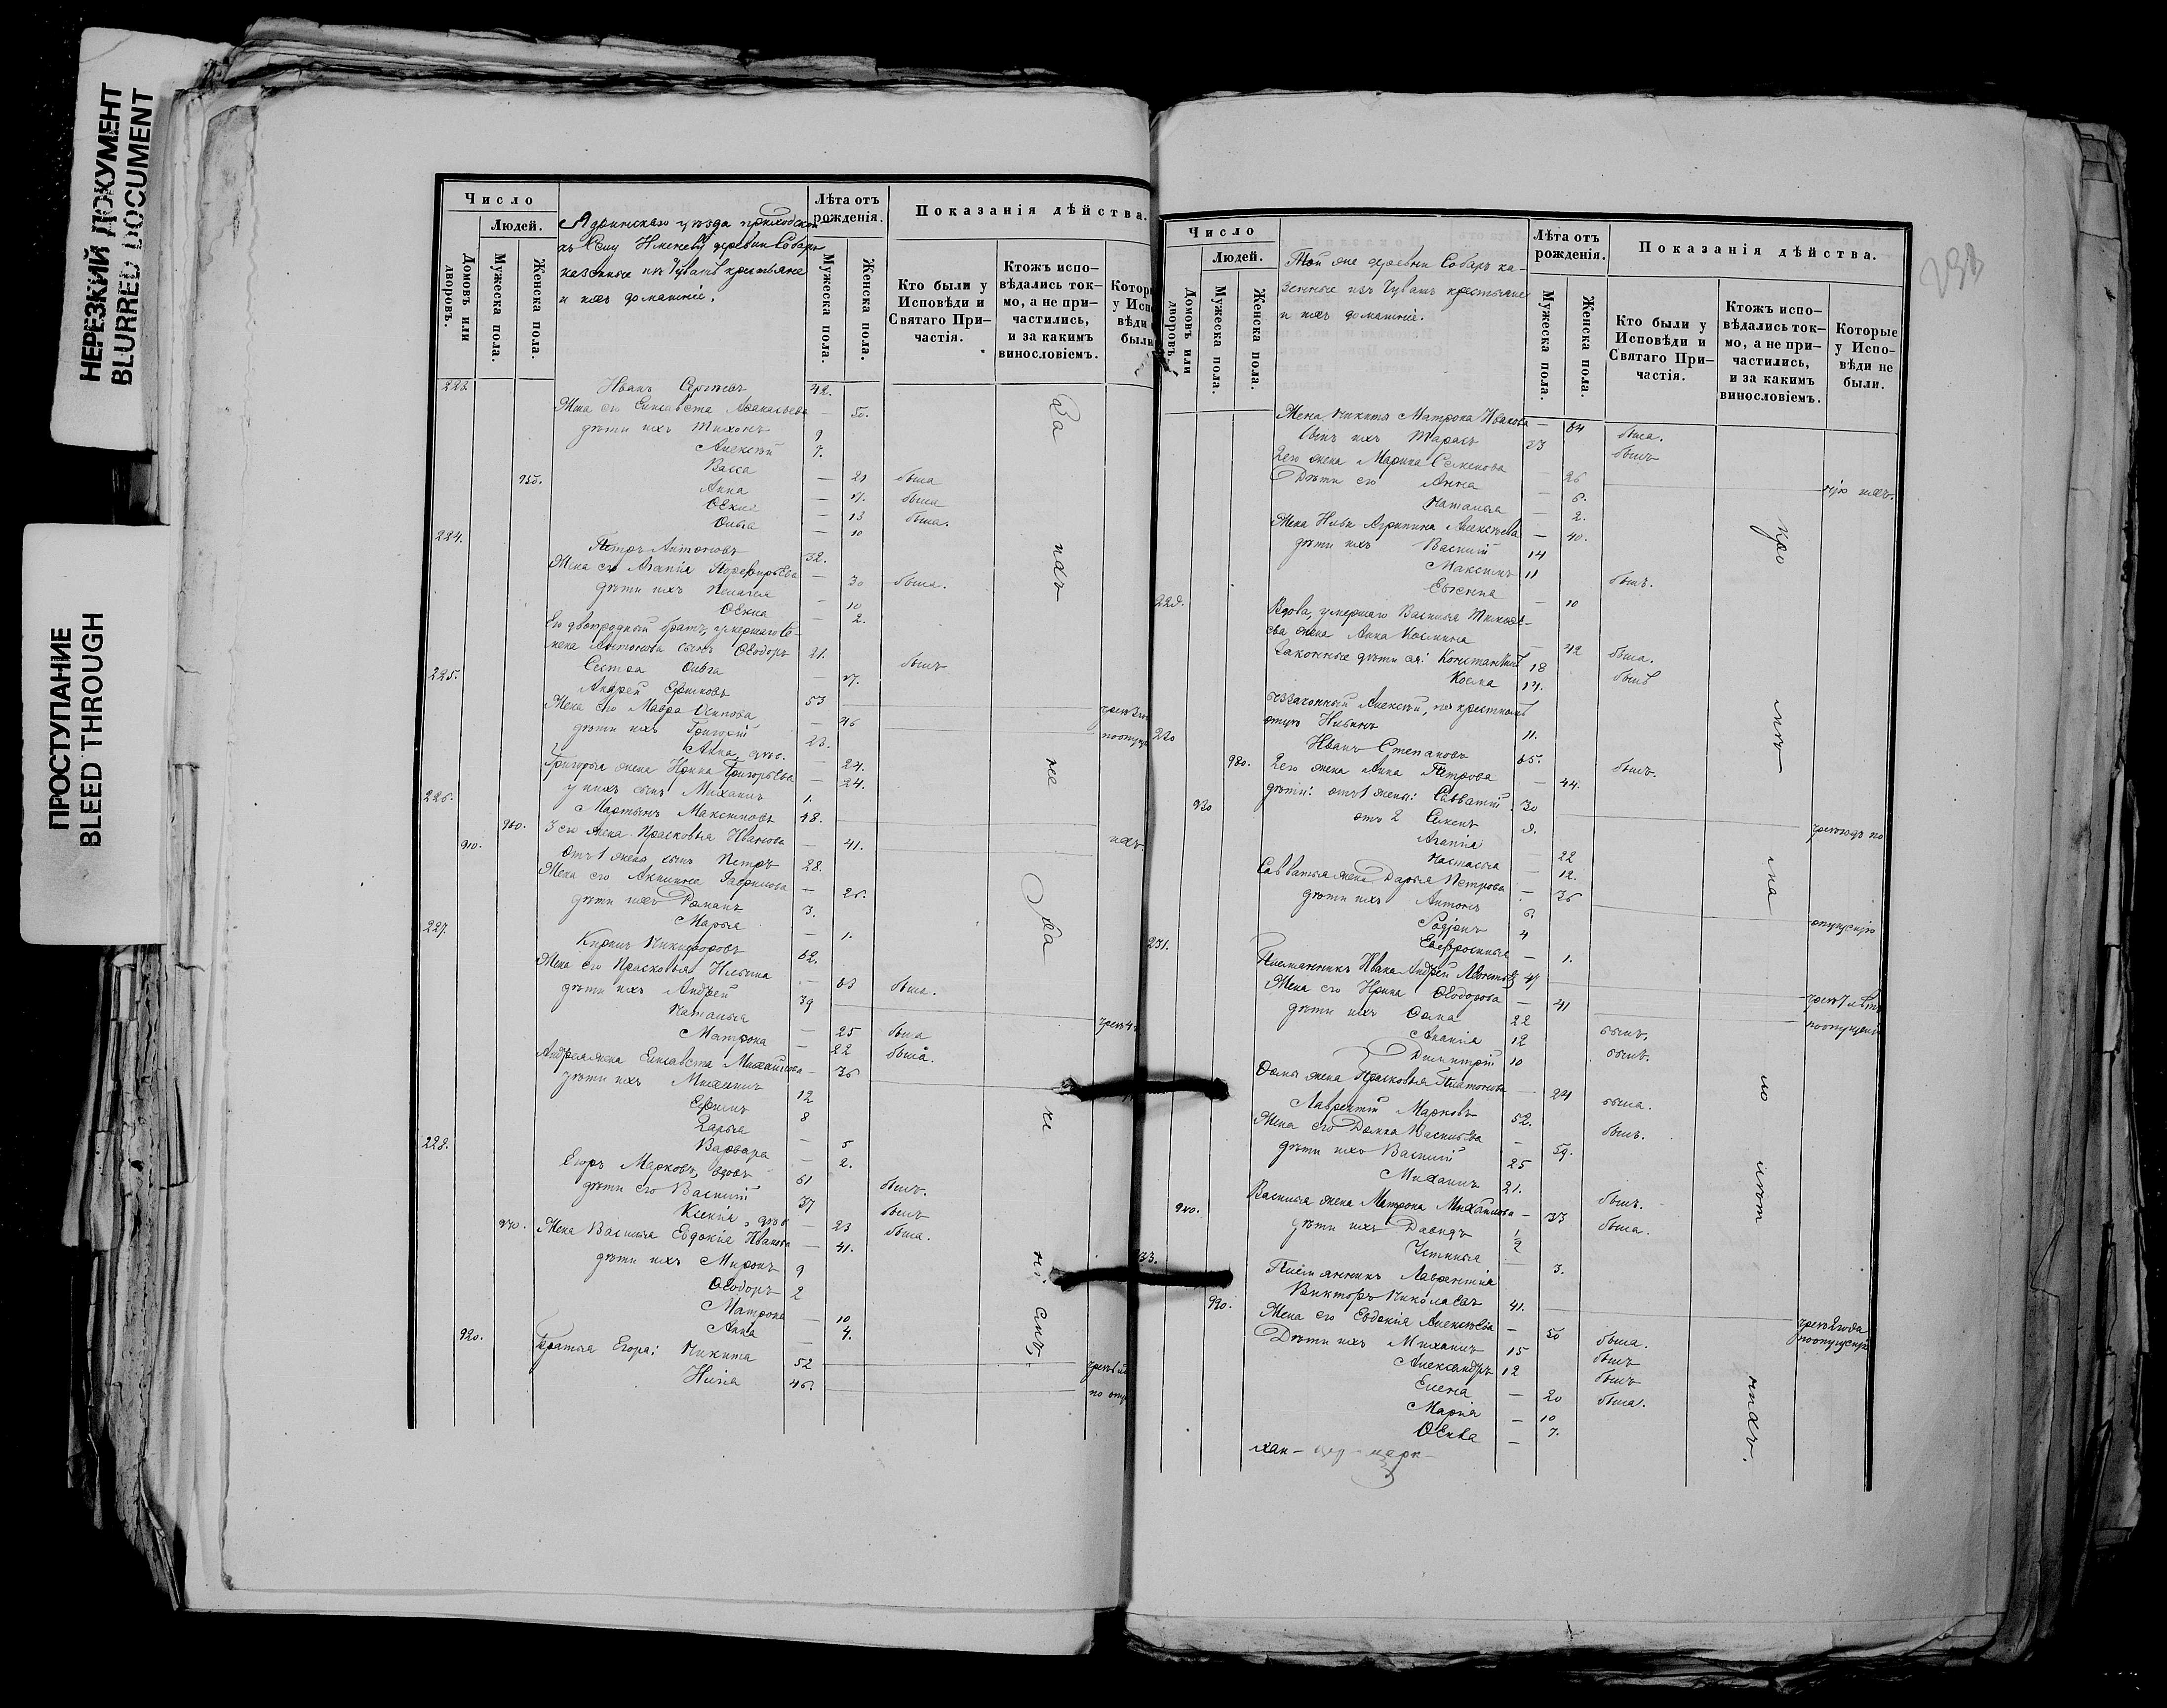 НЕРЕЗКИЙ ДОКУМЕНТ
BLURRED DOCUMENT
ПРОСТУПАНИЕ
BLEED THROUGH
Число
Людей.
Домовъ или дворовъ.
Мужеска пола.
Женска пола.
Ядринскаго уѣзда приходской
къ селу деревни Собаръ
казенные изъ Чувашъ крестьяне
и ихъ домашніе.
Лѣта отъ рожденія.
Мужеска пола.
Женска пола.
Показанія дѣйства.
Кто были у Исповѣди и Святаго При-
частія.
Ктожъ испо-
вѣдались ток-
мо, а не при-
частились,
и за какимъ
винословіемъ.
223. Иванъ Сергѣевъ 42.
Жена его Елисавета Аѳанасьева — 50.
дѣти ихъ Тихонъ 9
Алексѣй 7.
Васса — 21 была
950. Анна — 17. была
Ѳекла — 13 была.
Ольга — 10
224. Петръ Антоновъ 32.
Жена его Агапія Порфирьева — 30 была.
дѣти ихъ Пелагея — 10
Ѳекла — 2.
Его двоюродный братъ, умершаго Се-
мена Антонова сынъ Ѳеодоръ 21. былъ
Сестра Ольга — 17.
225. Андрей Ефимовъ 53
Жена его Мавра Осипова — 46
дѣти ихъ Григорій 23.
Анна, дѣв. — 24.
Григорья жена Ирина Григорьева — 24.
у нихъ сынъ Михаилъ 1.
226. Мартынъ Максимовъ 48.
960. 3 его жена Прасковья Иванова — 41. ихъ.
910. Отъ 1 жены сынъ Петръ 28.
Жена его Акилина Гаврилова — 26.
дѣти ихъ Романъ 3.
Марья — 1.
227. Кирилъ Никифоровъ 62.
Жена его Прасковья Ильина — 63 была.
дѣти ихъ Андрей 39
Наталья — 25 была
Матрона — 22 была.
Андрея жена Елисавета Михайлова — 36
дѣти ихъ Михаилъ 12
Ефимъ 8
Дарья — 5
Варвара — 2.
228. Егоръ Марковъ, вдовъ 61 былъ.
дѣти его Василій 37 былъ
Ксенія, дѣв. — 23 была.
970. Жена Василья Евдокія Иванова — 41.
дѣти ихъ Миронъ 9
Ѳеодоръ 2
Матрона — 10
Анна — 4.
920. Братья Егора: Никита 52
Илья 46.
За ихъ не
Число
Людей.
Домовъ или дворовъ.
Мужеска пола.
Женска пола.
Той же деревни Собаръ ка-
зенные изъ Чувашъ крестьяне
и ихъ домашніе.
Лѣта отъ рожденія.
Мужеска пола.
Женска пола.
Показанія дѣйства.
Кто были у Исповѣди и Святаго При-
частія.
Ктожъ испо-
вѣдались ток-
мо, а не при-
частились,
и за какимъ
винословіемъ.
Которые
у Испо-
вѣди не
были.
Жена Никиты Матрона Иванова — 64 была.
Сынъ ихъ Тарасъ 33 былъ
2 его жена Марина Семенова — 26
Дѣти его Анна — 6.
Наталья — 2.
Жена Ильи Агрипина Алексѣева — 40.
дѣти ихъ Василій 14
Максимъ 11 былъ.
Евгенія — 10
229. Вдова, умершаго Василья
жена Анна Космина — 42 была.
Законные дѣти ея: Константинъ 18 былъ
Косма 14.
незаконный Алексѣй, по крестному
отцу Ильинъ 11.
230 Иванъ Степановъ 65. былъ.
980. 2 его жена Анна Петрова — 44.
дѣти: отъ 1 жены: Савватій 30
930 отъ 2 Семенъ 9.
Агапія — 22
Настасья — 12.
Савватья жена Дарья Петрова — 36
дѣти ихъ Антонъ 6.
Родіонъ 4
Евфросинья — 1.
231. Племянникъ Ивана Андрей Леонтьевъ 47
Жена его Ирина Ѳеодорова — 41
дѣти ихъ Ѳома 22
Ананія 12 былъ.
Димитрій 10 былъ.
Ѳомы жена Прасковья Платонова — 24 была.
Лаврентій Марковъ 52. былъ.
Жена его Домна Васильева — 59.
дѣти ихъ Василій 25
Михаилъ 21. былъ.
940. Василья жена Матрона Михайлова — 33 была.
дѣти ихъ Давидъ 1/2
Устинья — 3.
33. Племянникъ Лаврентія
Викторъ Николаевъ 41.
990. Жена его Евдокія Алексѣева — 50 была.
Дѣти ихъ Михаилъ 15 былъ
Александръ 12 былъ
Елена — 20 была.
Марія — 10
Ѳекла — 7.